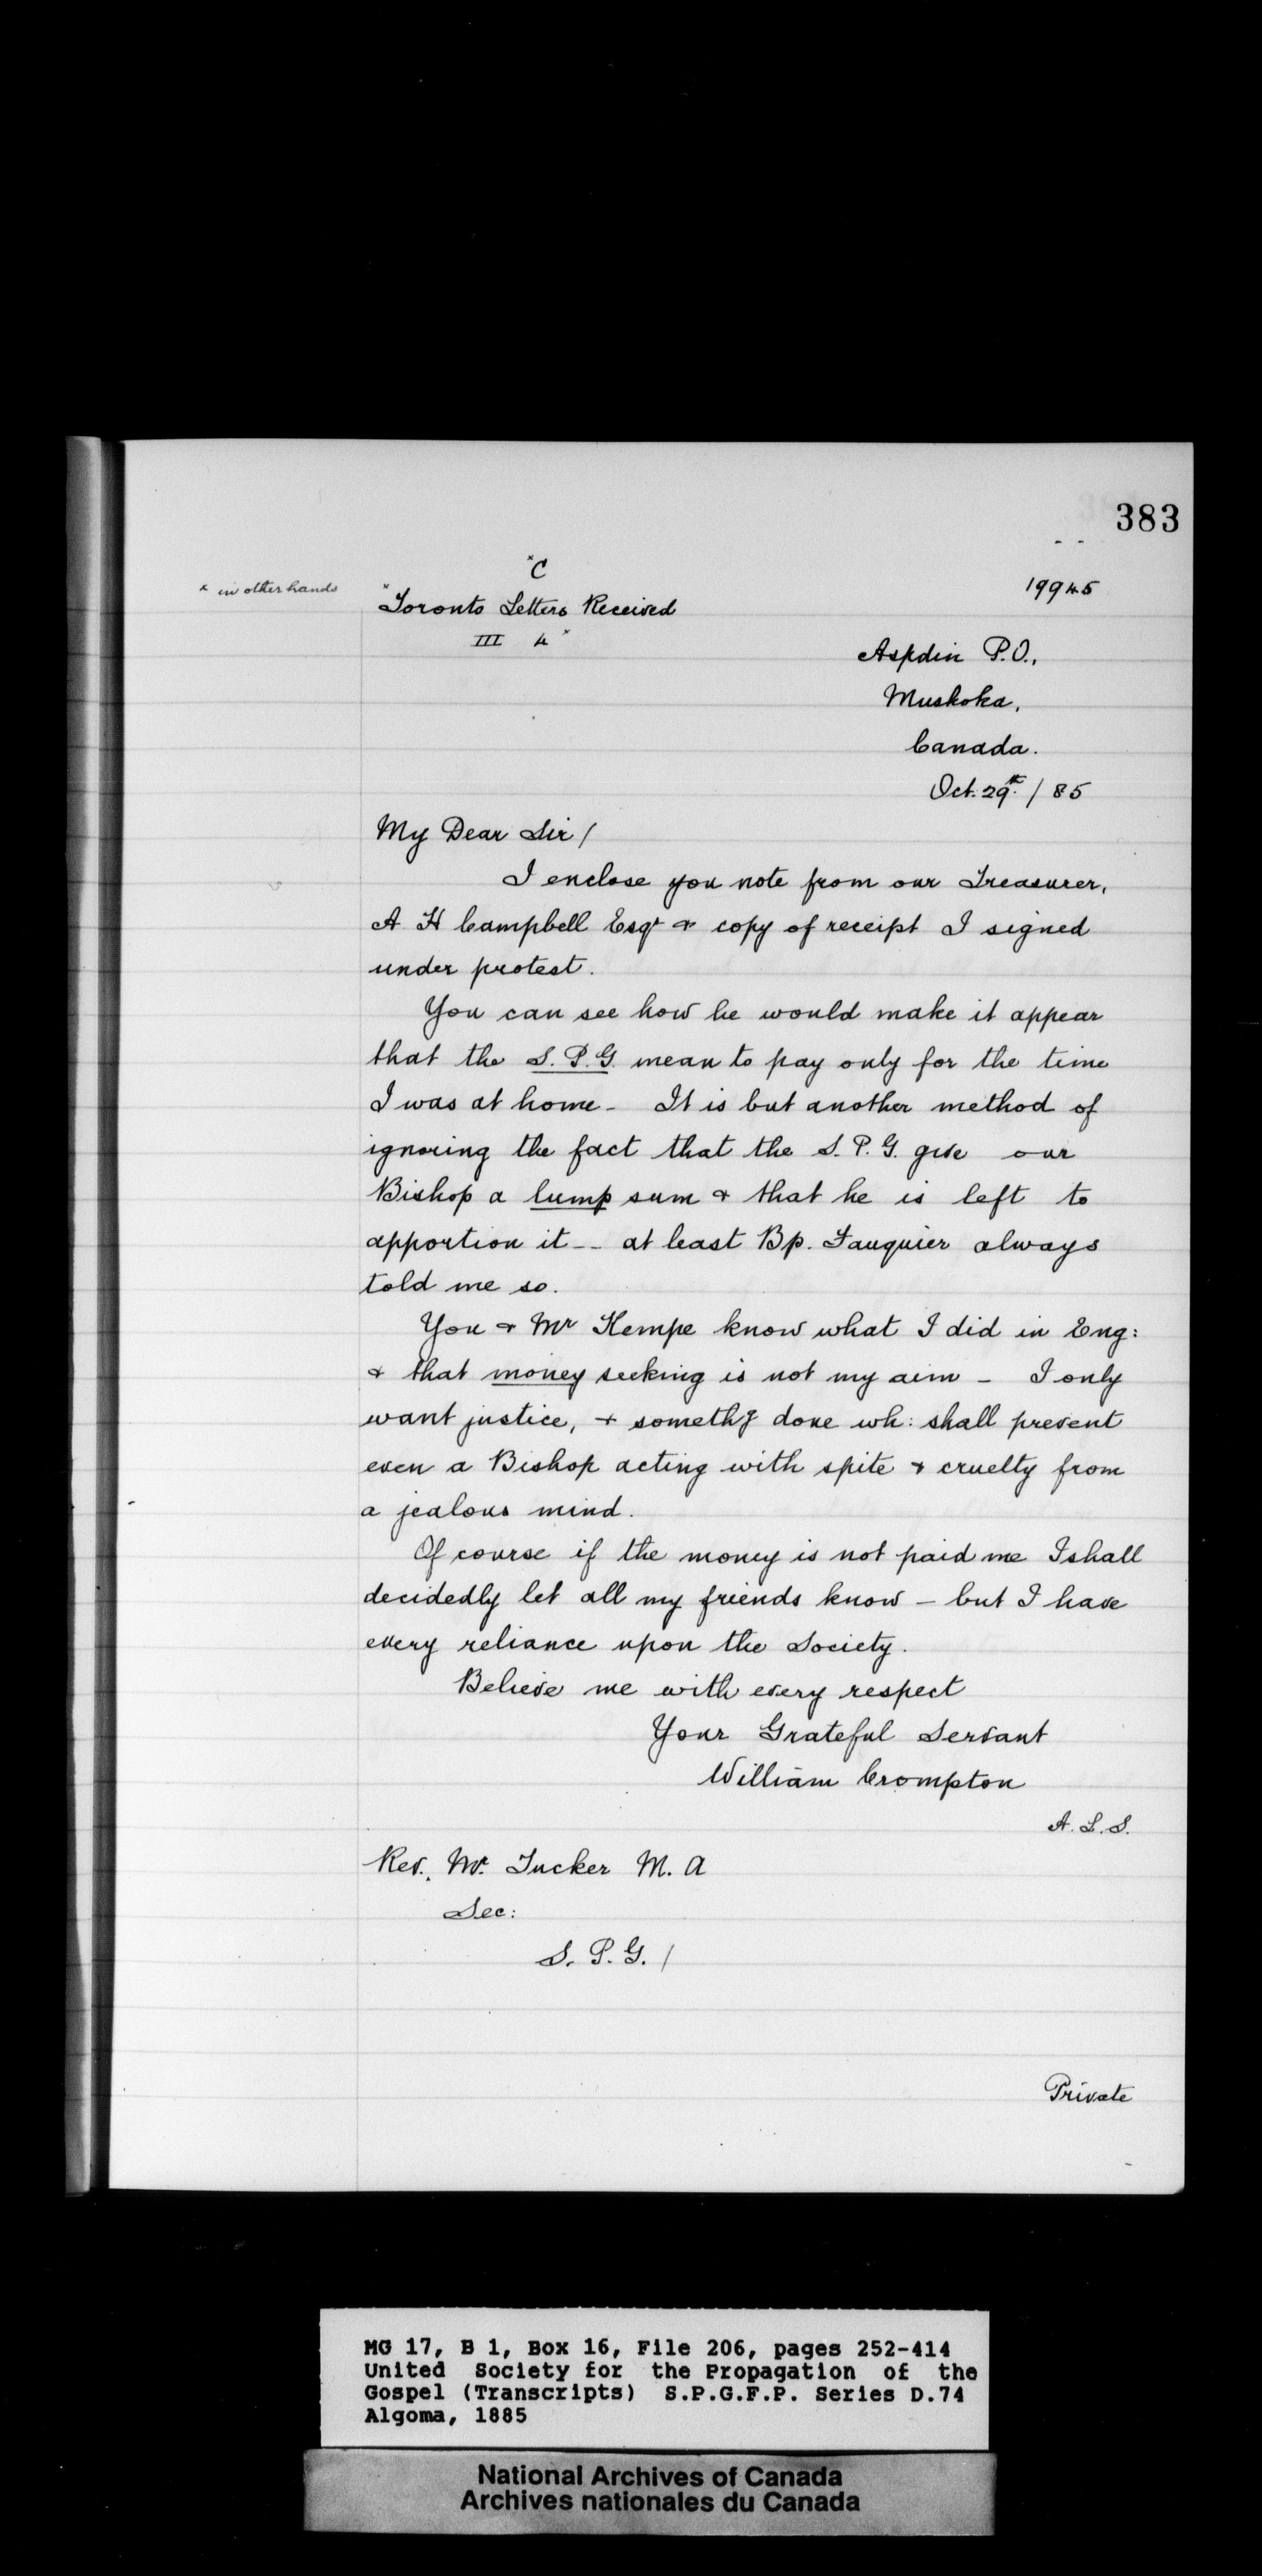 383
x C
x in other hands
x Toronto Letters Received
III 4 x
19945
Aspdin P.O.,
Muskoka,
Canada.
Oct. 29th. / 85
My Dear Sir /
I enclose you note from our Treasurer,
A H Campbell Esqr & copy of receipt I signed
under protest.
You can see how he would make it appear
that the S. P. G. mean to pay only for the time
I was at home - It is but another method of
ignoring the fact that the S. P. G. give our
Bishop a lump sum & that he is left to
apportion it -- at least Bp. Fauquier always
told me so.
You & Mr Kempe know what I did in Eng:
& that money seeking is not my aim - I only
want justice, & somethg done wh: shall prevent
even a Bishop acting with spite & cruelty from
a jealous mind.
Of course if the money is not paid me I shall
decidedly let all my friends know - but I have
every reliance upon the Society.
Believe me with every respect
Your Grateful Servant
William Crompton
A. L. S.
Rev. Mr. Tucker M. A
Sec:
S. P. G. /
Private
MG 17, B 1, Box 16, File 206, pages 252-414
United Society for the Propagation of the
Gospel (Transcripts) S.P.G.F.P. Series D.74
Algoma, 1885
National Archives of Canada
Archives nationales du Canada